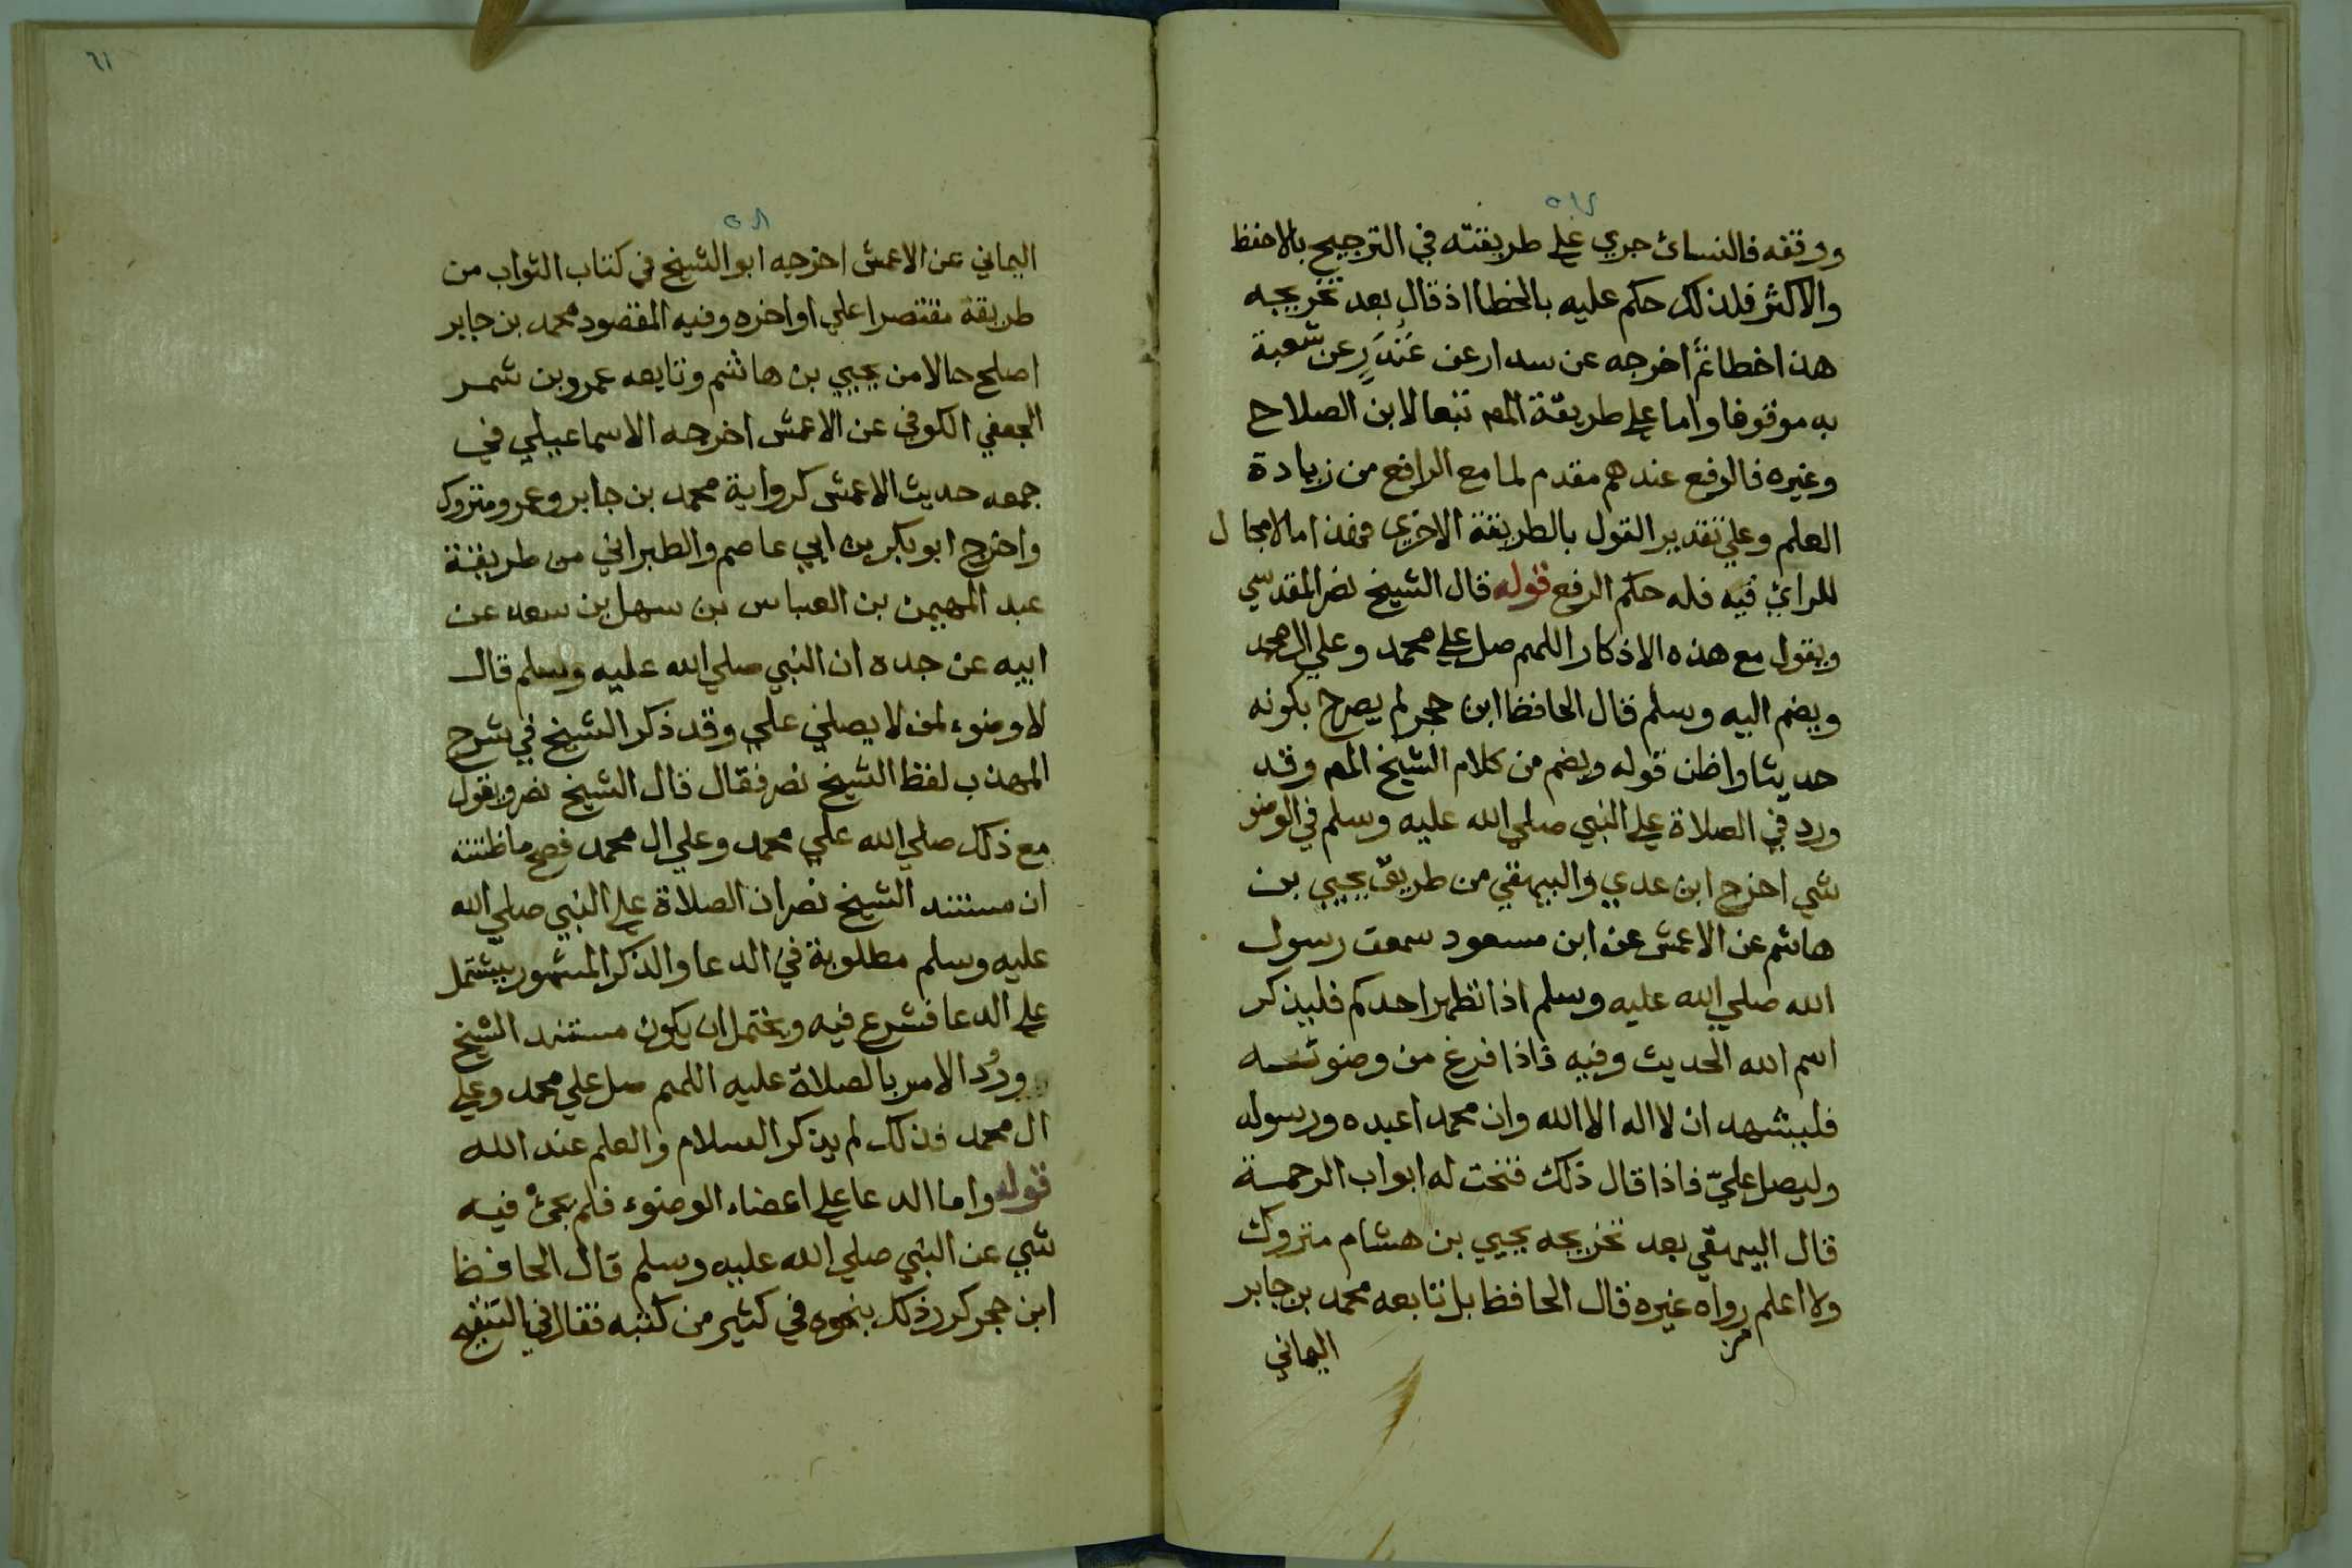 ووقفه فالنسائ جري علي طريقته في الترجيح بالاحفظ
والاكثر فلذلك حكم عليه بالخطا اذ قال بعد تخريجه
هذا خطا ثم اخرجه عن بندار عن غندر عن شعبة
به موقوفا واما علي طريقة المص تبعا لابن الصلاح
وغيره فالرفع عندهم مقدم لما مع الرافع من زيادة
العلم وعلي تقدير القول بالطريقة الاخري فهذا مما لا مجال
للراي فيه فله حكم الرفع قوله قال الشيخ نصر المقدسي
ويقول مع هذه الاذكار اللهم صل علي محمد وعلي ال محمد
ويضم اليه وسلم قال الحافظ ابن حجر لم يصرح بكونه
حديثا واظن قوله ويضم من كلام الشيخ المص وقد
ورد في الصلاة علي النبي صلي الله عليه وسلم في الوضو
شي اخرج ابن عدي والبيهقي من طريق يحيي بن
هاشم عن الاعمش عن ابن مسعود سمعت رسول
الله صلي الله عليه وسلم اذا تطهر احدكم فليذكر
اسم الله الحديث وفيه فاذا فرغ من وضوئه
فليشهد ان لا اله الا الله وان محمدا عبده ورسوله
وليصل عليّ فاذا قال ذلك فتحت له ابواب الرحمة
قال البيهقي بعد تخريجه يحيي بن هشام متروك
ولا اعلم رواه غيره قال الحافظ بل تابعه محمد بن جابر
اليماني
٦١
اليماني عن الاعمش اخرجه ابو الشيخ في كتاب الثواب من
طريقة مقتصرا علي اواخره وفيه المقصود محمد بن جابر
اصلح حالا من يحيي بن هاشم وتابعه عمرو بن شمر
الجعفي الكوفي عن الاعمش اخرجه الاسماعيلي في
جمعه حديث الاعمش كرواية محمد بن جابر وعمرو متروك
واخرج ابو بكر بن ابي عاصم والطبراني من طريقة
عبد المهيمن بن العباس بن سهل بن سعد عن
ابيه عن جده ان النبي صلي الله عليه وسلم قال
لا وضوء لمن لا يصلي علي وقد ذكر الشيخ في شرح
المهذب لفظ الشيخ نصر فقال قال الشيخ نصر ويقول
مع ذلك صلي الله علي محمد وعلي ال محمد فصح ما ظننته
ان مستند الشيخ نصر ان الصلاة علي النبي صلي الله
عليه وسلم مطلوبة في الدعا والذكر المشهور يشتمل
علي الدعا فشرع فيه ويحتمل ان يكون مستند الشيخ
ورُد الامر بالصلاة عليه اللهم صل علي محمد وعلي
ال محمد فذلك لم يذكر السلام والعلم عند الله
قوله واما الدعا علي اعضاء الوضوء فلم يجئ فيه
شي عن النبي صلي الله عليه وسلم قال الحافظ
ابن حجر كرر ذلك بنحوه في كثير من كتبه فقال في التنقيح